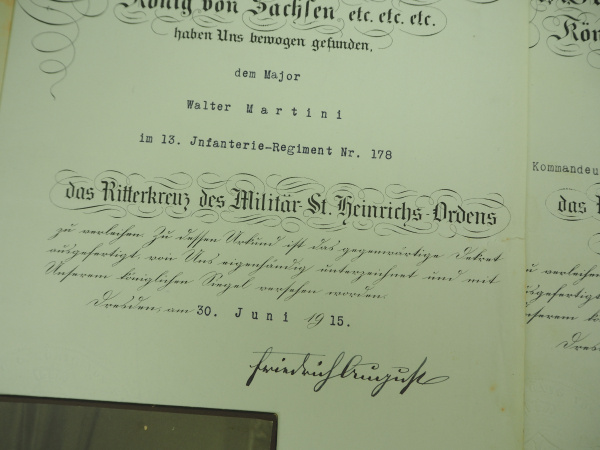 König von Sachsen etc. etc. etc.
haben Uns bewogen gefunden,
dem Major
Walter Martini
im 13. Jnfanterie-Regiment Nr. 178
das Ritterkreuz des Militär-St. Heinrichs-Ordens
zu verleihen. Zu dessen Urkund ist das gegenwärtige Dekret
ausgefertigt, von Uns eigenhändig unterzeichnet und mit
Unserem königlichen Siegel versehen worden.
Dresden, am 30. Juni 1915.
Friedrich August
Kön
Kommandeu
das
zu verleihen
ausgefertigt
Unserem k
Dresd